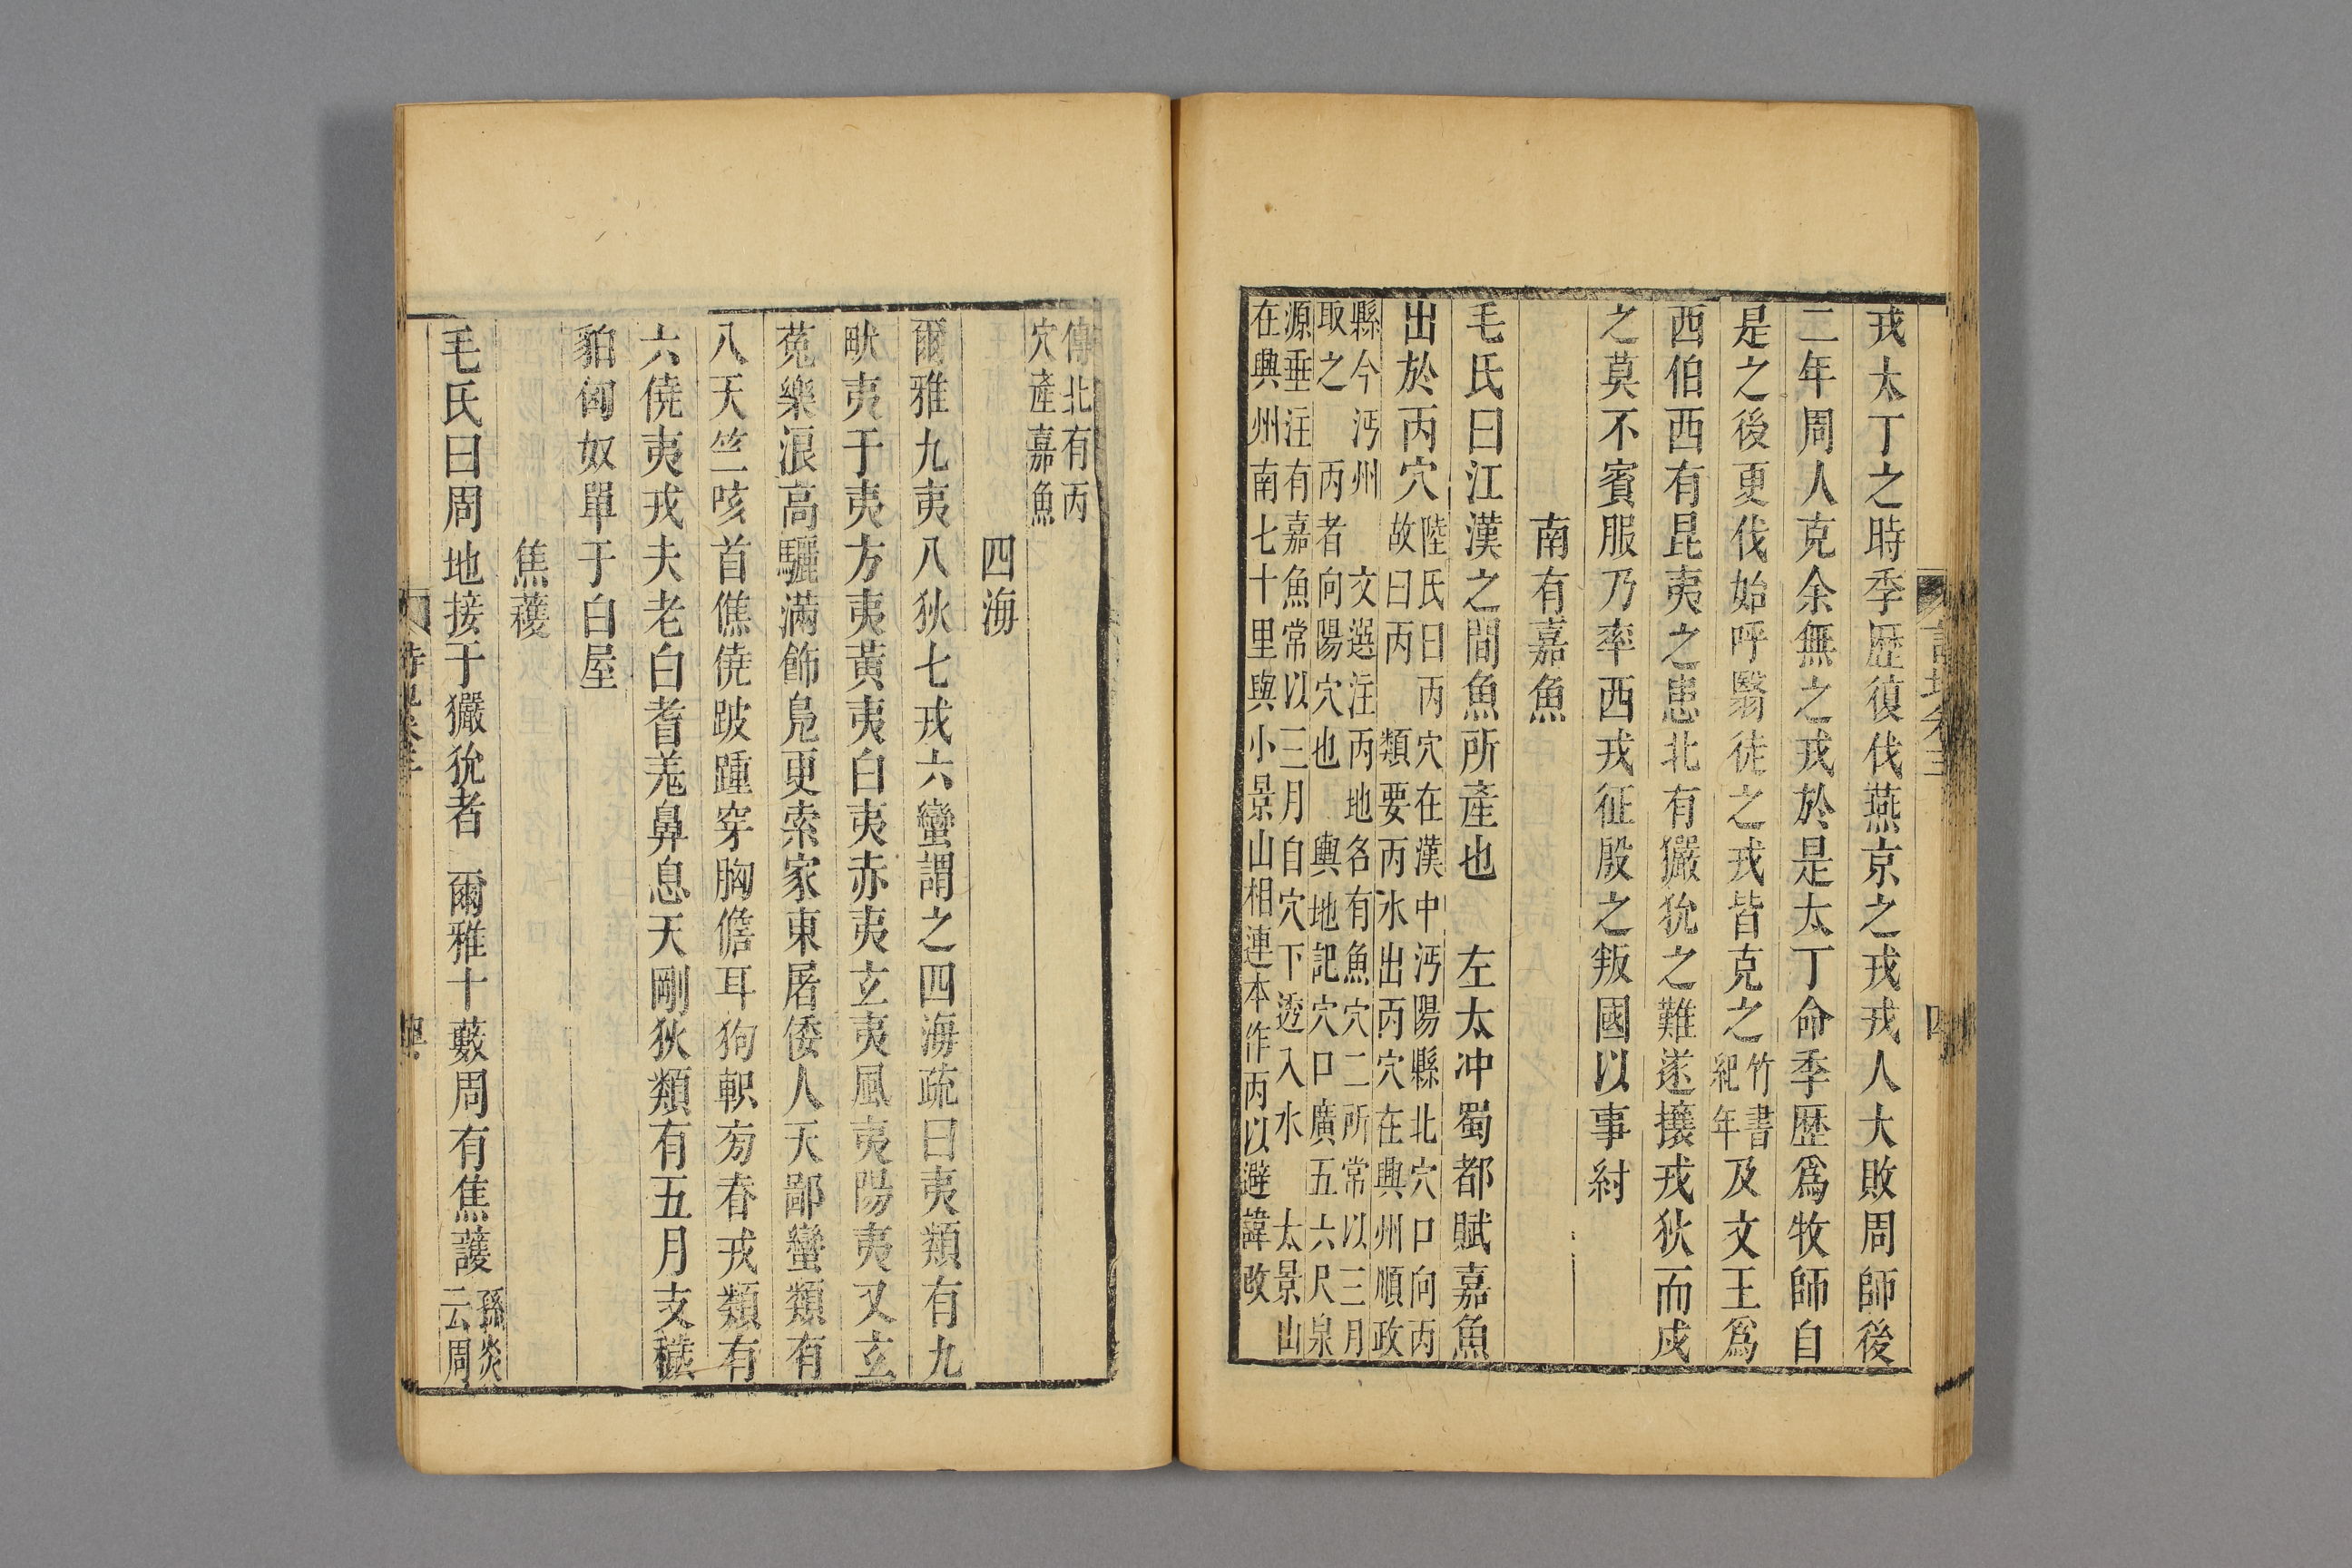 戎太丁之時季歴復伐燕京之戎戎人大敗周師後
二年周人克余無之戎於是太丁命季歴爲牧師自
是之後更伐始呼翳徒之戎皆克之竹書紀年及文王爲
西伯西有昆夷之患北有玁狁之難遂攘戎狄而戍
之莫不賓服乃率西戎征殷之叛國以事紂
南有嘉魚
毛氏曰江漢之間魚所產也 左太冲蜀都賦嘉魚
出於丙穴陸氏曰丙穴在漢中沔陽縣北穴口向丙
故曰丙 類要丙水出丙穴在興州順政
縣今沔州 文選注丙地名有魚穴二所常以三月
取之 丙者向陽穴也 輿地記穴口廣五六尺泉
源垂注有嘉魚常以三月自穴下透入水 太景山
在興州南七十里與小景山相連本作丙以避諱改
傳北有丙
穴產嘉魚
四海
爾雅九夷八狄七戎六蠻謂之四海疏曰夷類有九
畎夷于夷方夷黃夷白夷赤夷玄夷風夷陽夷又玄
菟樂浪高驪滿飾鳧更索家東屠倭人天鄙蠻類有
八天竺咳首僬僥跛踵穿胸儋耳狗軹旁舂戎類有
六僥夷戎夫老白耆羌鼻息天剛狄類有五月支穢
貊匈奴單于白屋
焦穫
毛氏曰周地接于玁狁者 爾雅十藪周有焦護孫炎云周